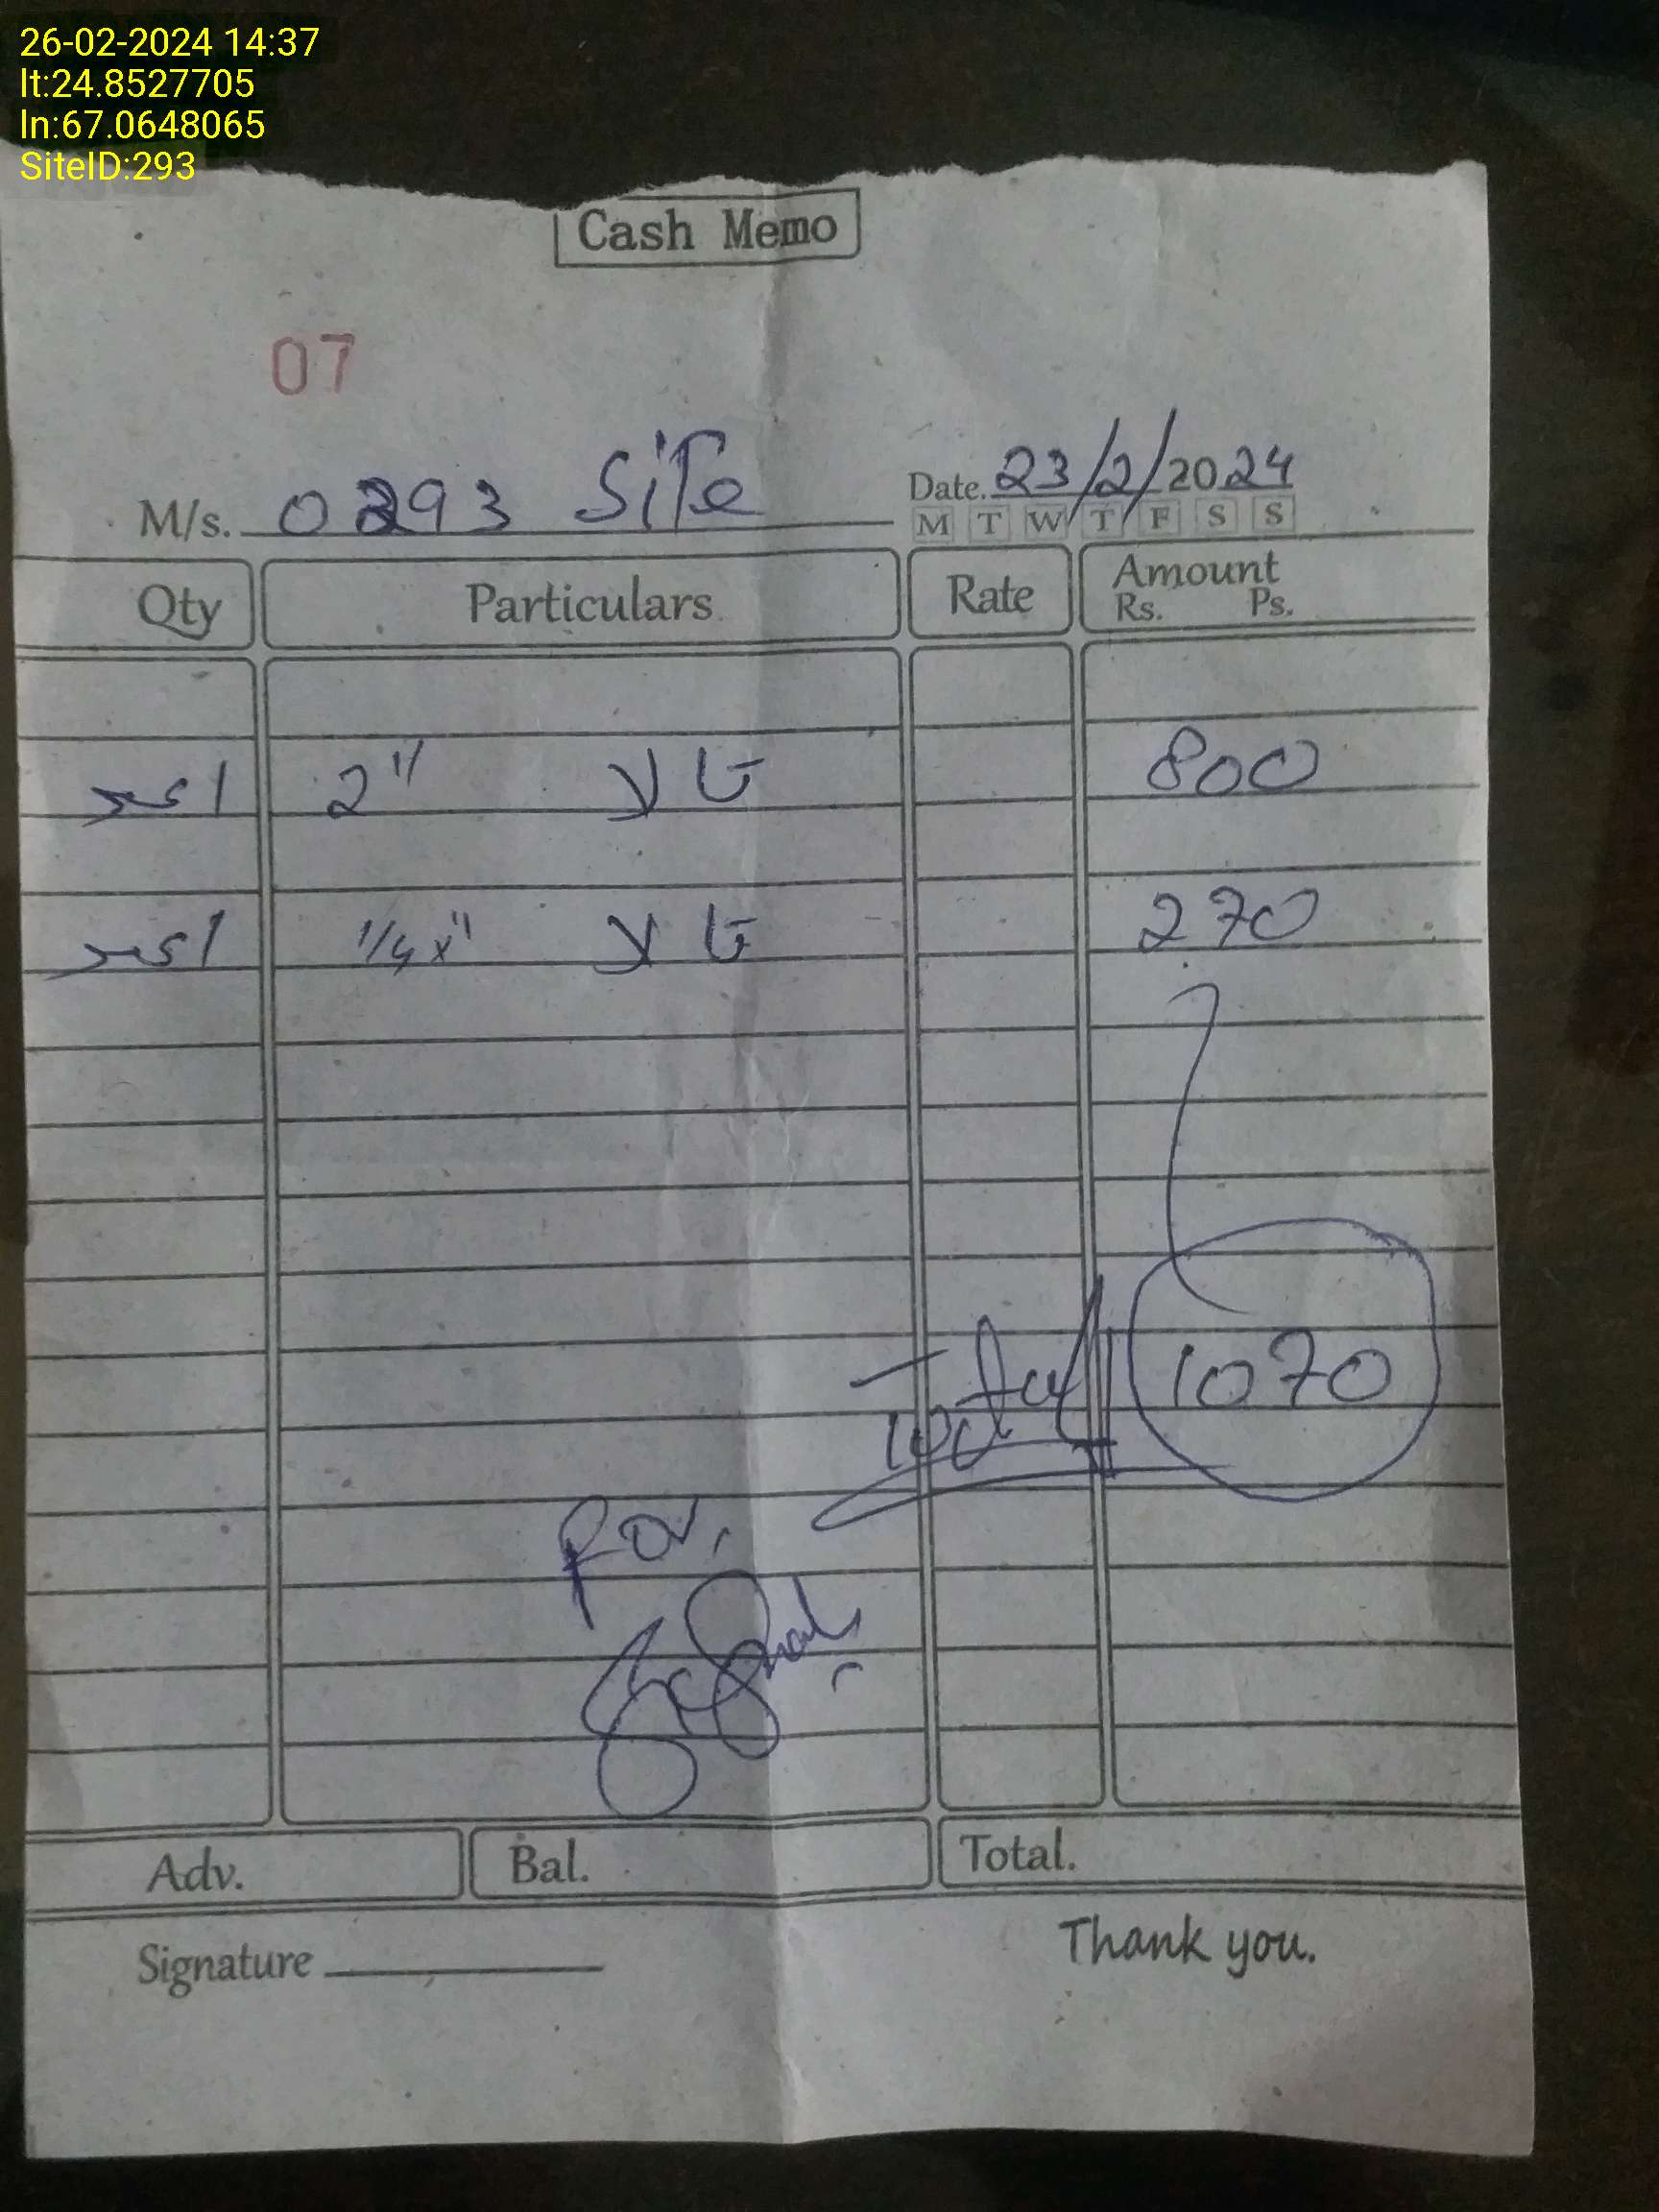 26-02-2024 14:37
lt:24.8527705
ln:67.0648065
SiteID:293
Cash Memo
07
M/s. 0293 Site
Date. 23/2/2024
M T W T F S S
Qty Particulars Rate Amount
Rs. Ps.
1 عدد 2" تالا 800
1 عدد تالا 270
Total 1070
For,
Adv. Bal. Total.
Signature
Thank you.